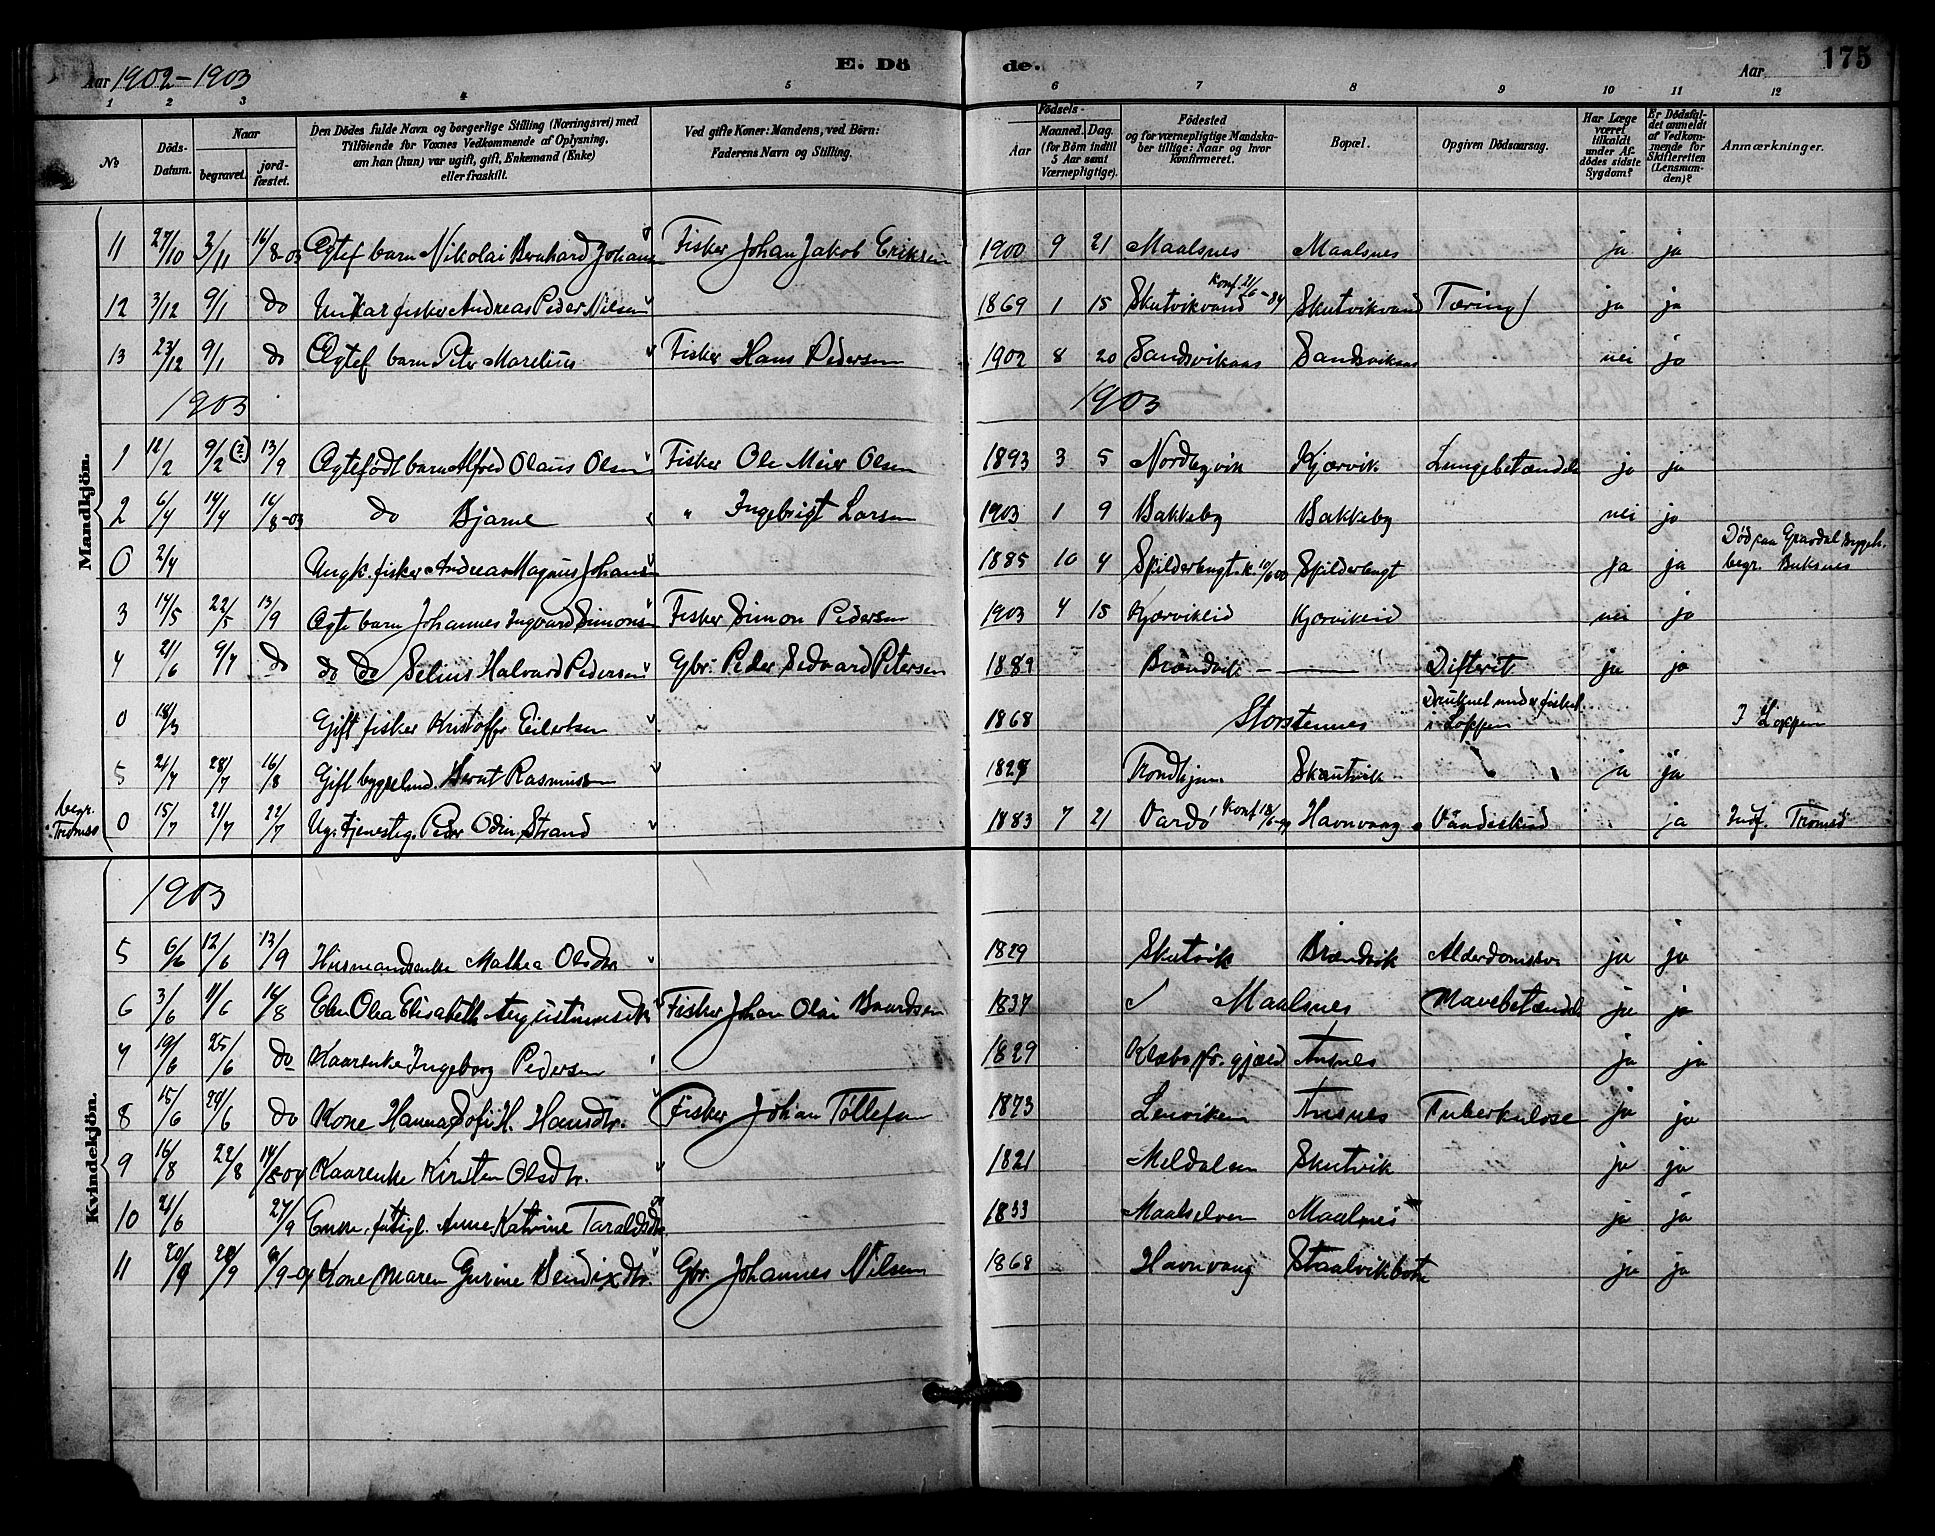 Aar 1902-1903 E. Dö de. Aar 175
1 2 3 4 5 6 7 8 9 10 11 12
№
Döds-Datum.
Naar
begravet.
jordfæstet.
Den Dödes fulde Navn og borgerlige Stilling (Næringsvei) med
Tilföiende for Voxnes Vedkommende af Oplysning,
om han (hun) var ugift, gift, Enkemand (Enke)
eller fraskilt.
Ved gifte Koner: Mandens, ved Börn:
Faderens Navn og Stilling.
Födsels-
Aar
Maaned. Dag.
(for Börn indtil
5 Aar samt
Værnepligtige).
Födested
og for værnepligtige Mandskaber tillige: Naar og hvor
Konfirmeret.
Bopæl.
Opgiven Dödsaarsag.
Har Læge
været
tilkaldt
under Afdödes sidste
Sygdom?
Er Dödsfaldet anmeldt
af Vedkommende for
Skifteretten
(Lensmanden)?
Anmærkninger.
Mandkjön.
11 27/10 3/11 16/8-03 Ægtef barn Nikolai Bernhard Johans Fisker Johan Jakob Eriksen 1900 9 21 Maalsnes Maalsnes ja ja
12 3/12 9/1 do Unkar fisker Andreas Peder Nilsen 1869 1 15 Skutvikvand Konf. 21/6-84 Skutvikvand Tæring ja ja
13 23/12 9/1 do Ægtef barn Peter Marelius Fisker Hans Pedersen 1902 8 20 Sandsvikaas Sandsvikaas nei ja
1903 1903
1 12/2 9/2 (?) 13/9 Ægtefødt barn Alfred Olaus Olsen Fisker Ole Meier Olsen 1893 3 5 Nordbyvik Kjærvik Lungebetændels ja ja
2 6/4 14/4 16/8-03 do Bjarne " Ingebrigt Larsen 1903 1 9 Bakkeby Bakkeby nei ja
0 2/4 Ungk. fisker Andreas Magnus Johans 1885 10 4 Spilderbugt. k. Spilderbugt ja ja Død paa Gravdal sygeh.
begr. Buksnes
3 14/5 22/5 13/9 Ægte barn Johannes Ingvard Simonsen Fisker Simon Pedersen 1903 4 15 Kjærvikeid Kjærvikeid nei ja
4 21/6 9/7 do do do Selius Halvard Pedersen Gbr. Peder Sedvard Petersen 1889 Brændvik — Difterit ja ja
0 18/3 Gift fisker Kristoffer Eilertsen 1868 Storstennes Druknet under fisket
i Loppen I Loppen
5 21/7 28/7 16/8 Gift Bernt Rasmussen 1827 Trondhjem Skutvik ja ja
begr.
Tromsø 0 15/7 21/7 22/7 Ug. tjenestg. Peder Odin Strand 1883 7 21 Vardø Konf. Havnvaag ja Indf. Tromsø
Kvindekjön.
1903
5 6/6 12/6 13/9 Husmandsenke Mathea Olsdtr. 1829 Skutvik Brændvik ja ja
6 3/6 11/6 16/8 Elen Olea Elisabeth Augustinusdtr Fisker Johan Olai Baardsen 1837 Maalsnes Mavebetændels ja ja
7 19/6 25/6 do Kaarenke Ingeborg Pedersen 1829 Klæbo pr.gjæld Ansnes ja ja
8 15/6 29/6 do Kone Hanna Sofi H. Hansdtr. Fisker Johan Tollefsen 1873 Lenviken Ansnes Tuberkulose ja ja
9 16/8 22/8 14/8-04 Kaarenke Kirsten Olsdtr. 1821 Meldalen Skutvik ja ja
10 21/6 27/9 Enke, fattigl. Anne Katrine Taraldsdtr. 1833 Maalselven Maalsnes ja ja
11 20/9 28/9 Kone Maren Gurine Bendixdtr. Gbr. Johannes Nilsen 1868 Havnvaag Staalvikbotn ja ja